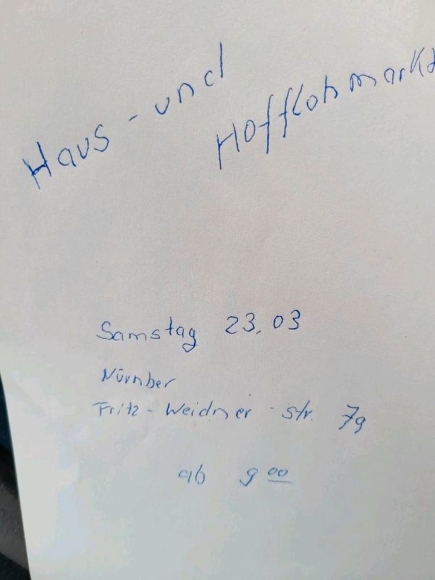 Haus - und
Hofflohmarkt
Samstag 23.03
Nürnber
Fritz - Weidner - str. 79
ab 9 00